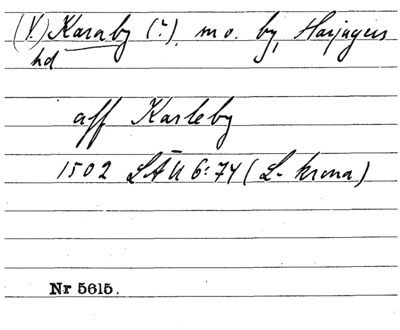 (V.) Karaby (?), mo. by, Harjagers
hd
aff Karleby
1502 LÄU 6:74 (L-krona)
Nr 5615.